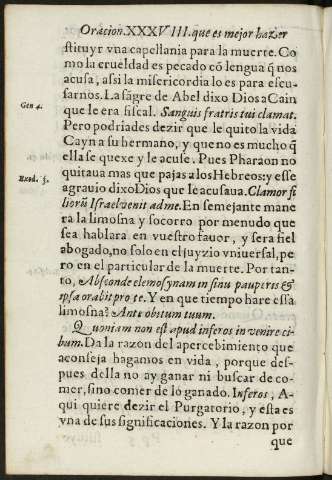 Oracion.XXXVIII.que es mejor hazer
stituyr vna capellania para la muerte. Co
mo la crueldad es pecado cō lengua q̄ nos
acusa, assi la misericordia lo es para escu-
sarnos. La sāgre de Abel dixo Dios a Cain
Gen 4.
que le era fiscal. Sanguis fratris tui clamat.
Pero podriades dezir que le quito la vida
Cayn a su hermano, y que no es mucho q̄
ella se quexe y le acuse. Pues Pharaon no
quitaua mas que pajas a los Hebreos: y esse
Exod. 3.
agrauio dixo Dios que le acusaua. Clamor fi
liorū Israel venit ad me. En semejante mane
ra la limosna y socorro por menudo que
sea hablara en vuestro fauor, y sera fiel
abogado, no solo en el juyzio vniuersal, pe
ro en el particular de la muerte. Por tan-
to, Absconde elemosynam in sinu pauperis &
ipsa orabit pro te. Y en que tiempo hare essa
limosna? Ante obitum tuum.
Quoniam non est apud inferos invenire ci-
bum. Da la razon del apercebimiento que
aconseja hagamos en vida, porque des-
pues della no ay ganar ni buscar de co-
mer, sino comer de lo ganado. Inferos, A-
qui quiere dezir el Purgatorio, y esta es
vna de sus significaciones. Y la razon por
que